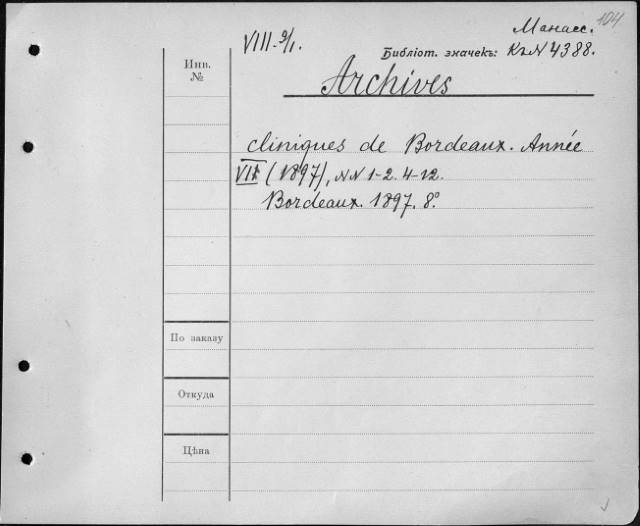 104
Манасс.
VIII-9/1.
Библіот. значекъ: К2N 4388.
Инв.
№
Archives
cliniques de Bordeaux. Année
VII (1897), NN 1-2. 4-12.
Bordeaux. 1897. 8°.
По заказу
Откуда
Цѣна